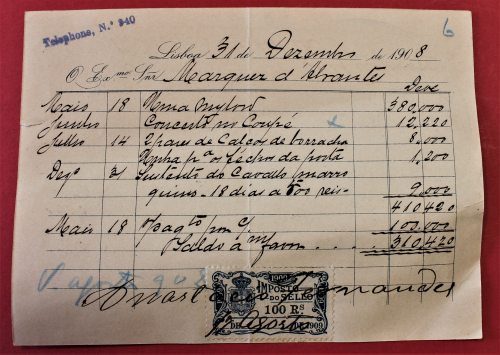 Telephone, N.º 940
6
Lisboa 31 de Dezembro de 1908
O Ex.mo Snr Marquez d'Abrantes
Deve
Maio 18 Uma Mylord 380,000
Junho Concerto no Coupé x 12,220
Julho 14 2 pares de Calços de borracha 8,000
pª os fechos da porta 1,200
Dezº 31 Sustento do Cavallo marro
quino - 18 dias a 500 reis - 9,000
410420
Maio 18 Pagto por c/ 100,000
Saldo a m/ favor . . . . 310,420
agosto 908
Anastacio Fernandes
1909
IMPOSTO
DO SELLO
100 Rs
DE Agosto DE 1909